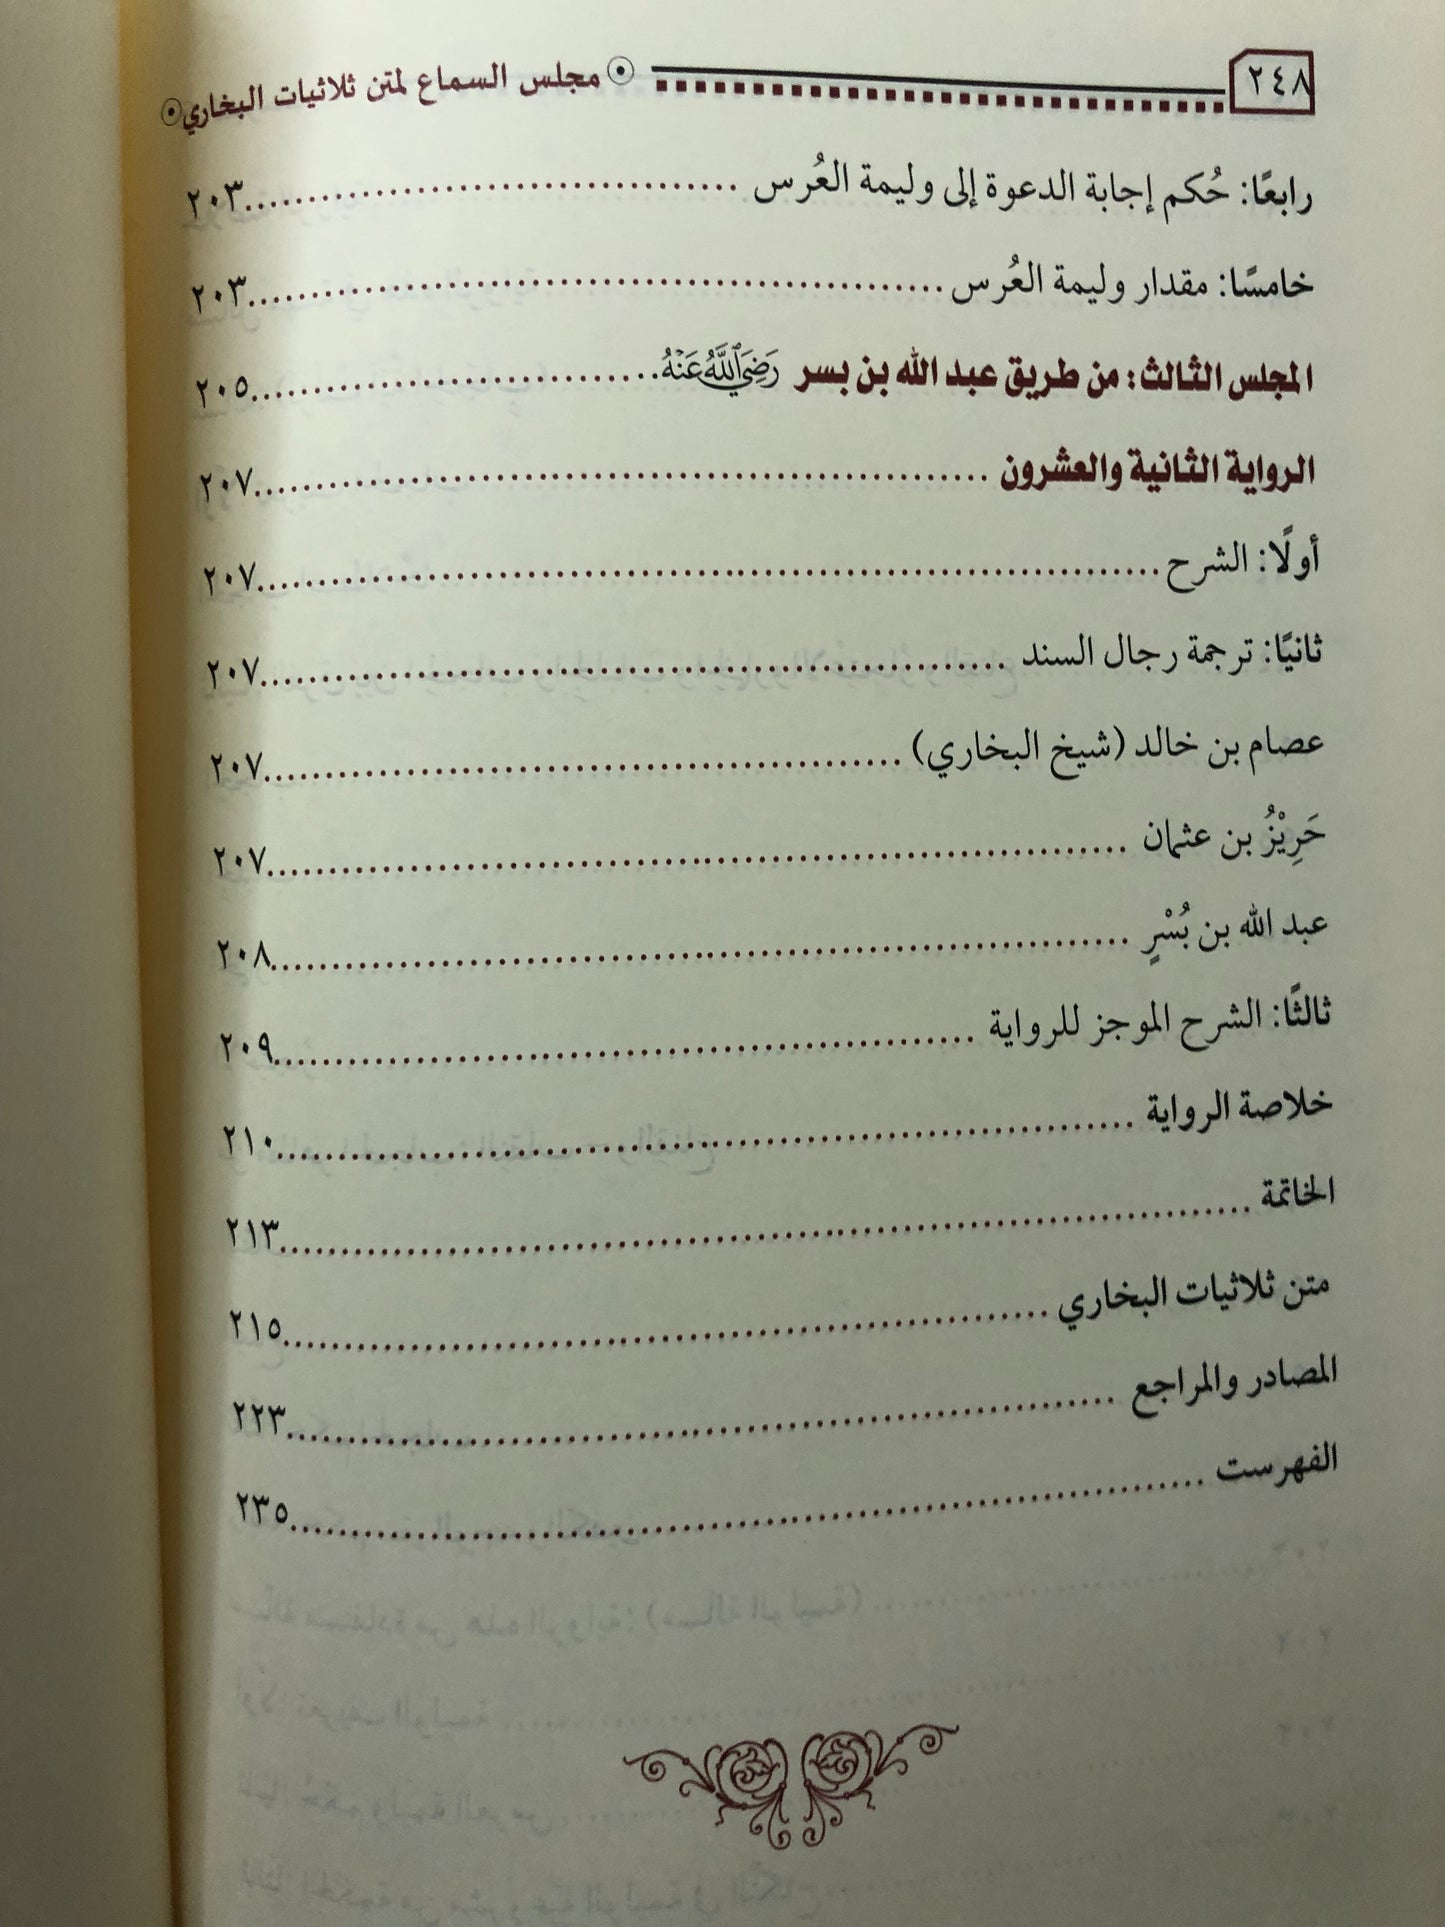 ٢٤٨ مجلس السماع لمتن ثلاثيات البخاري
رابعًا: حُكم إجابة الدعوة إلى وليمة العُرس ........ ٢٠٣
خامسًا: مقدار وليمة العُرس ........ ٢٠٣
المجلس الثالث: من طريق عبد الله بن بسر رَضِيَ ٱللَّهُ عَنْهُ ........ ٢٠٥
الرواية الثانية والعشرون ........ ٢٠٧
أولًا: الشرح ........ ٢٠٧
ثانيًا: ترجمة رجال السند ........ ٢٠٧
عصام بن خالد (شيخ البخاري) ........ ٢٠٧
حَرِيْزُ بن عثمان ........ ٢٠٧
عبد الله بن بُسْرٍ ........ ٢٠٨
ثالثًا: الشرح الموجز للرواية ........ ٢٠٩
خلاصة الرواية ........ ٢١٠
الخاتمة ........ ٢١٣
متن ثلاثيات البخاري ........ ٢١٥
المصادر والمراجع ........ ٢٢٣
الفهرست ........ ٢٣٥